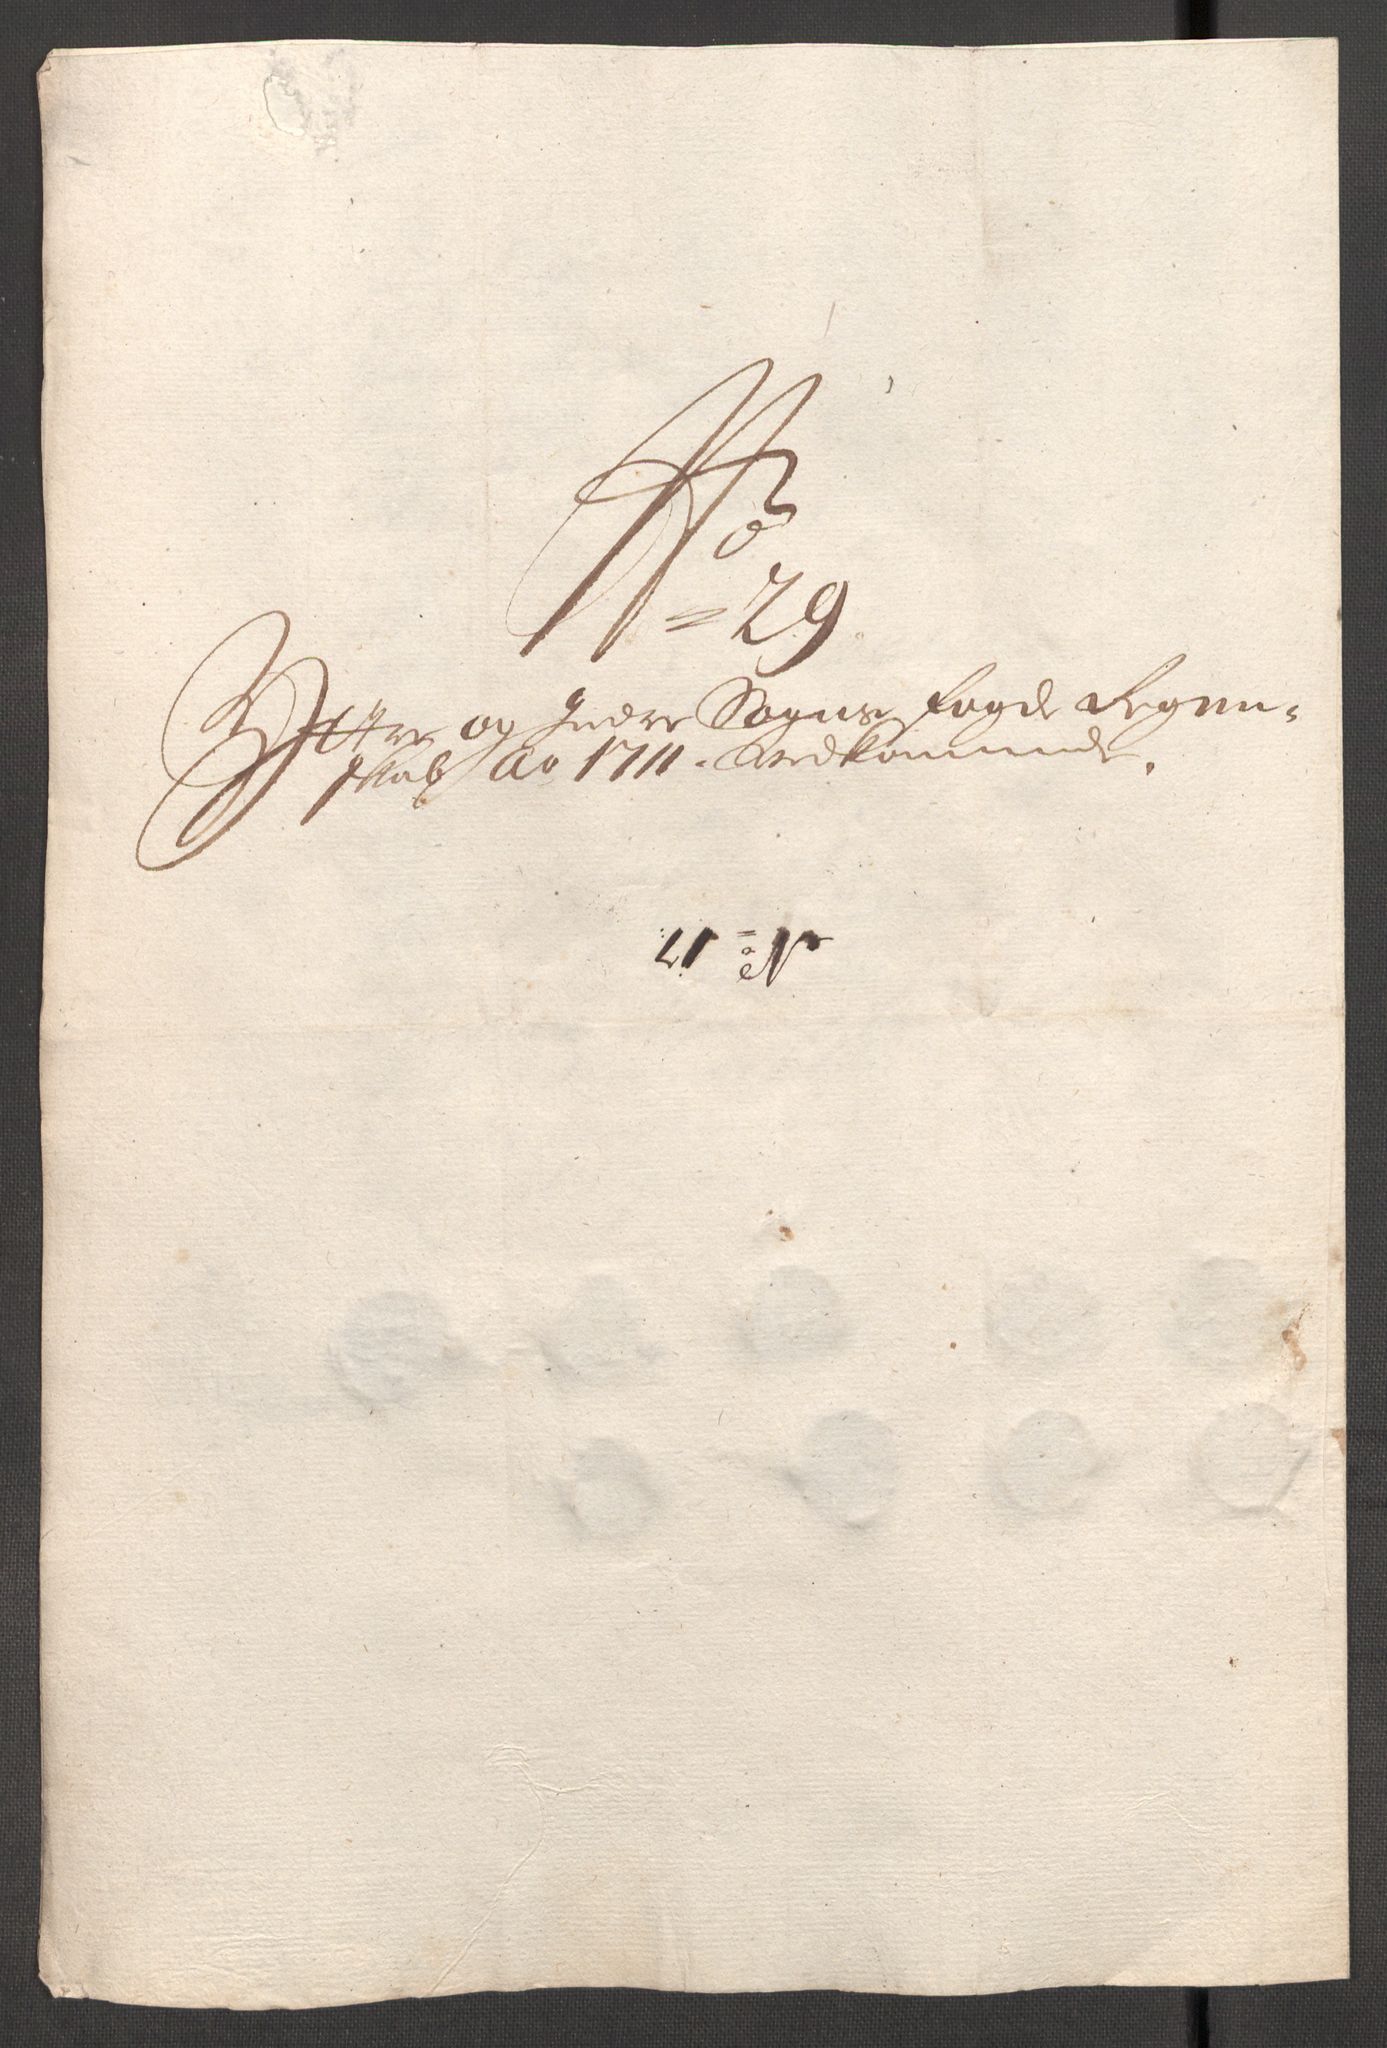 No
= 29
Yttre og Indre Sogns fogde Regen-
skab Ao 1711. Vedkommende.
No = 17.